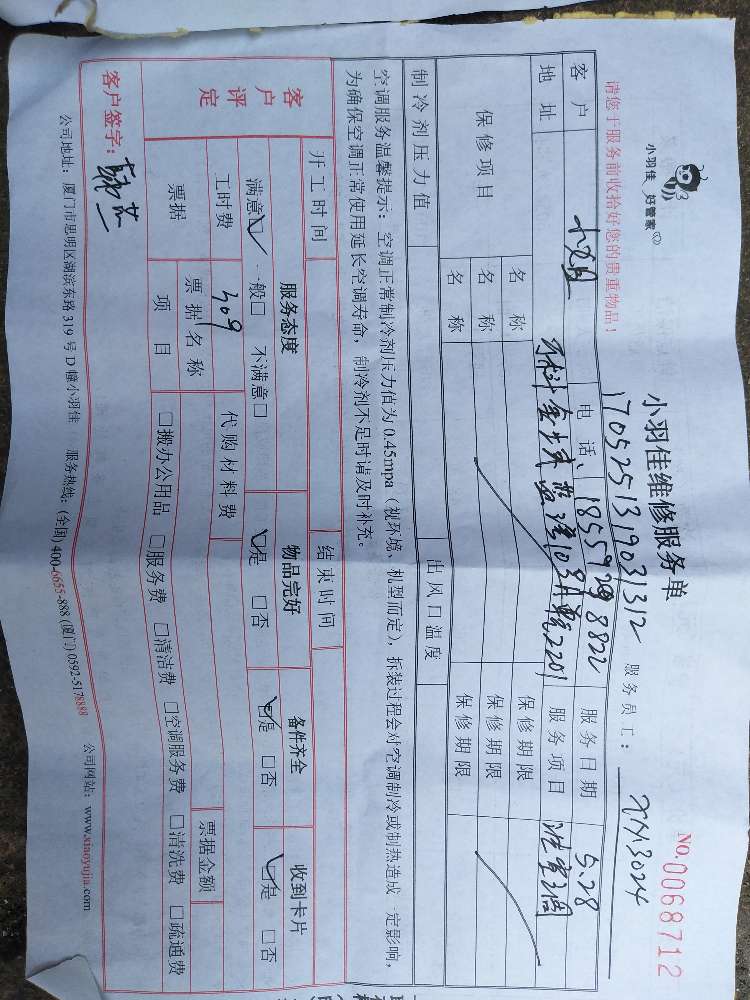 小羽佳 好管家
小羽佳维修服务单
No.0068712
1705251319031312
请您于服务前收拾好您的贵重物品!
服务员工: XM3024
客户 电话 18559298822 服务日期 5.28
地址 服务项目
保修项目 名称 保修期限
名称 保修期限
名称 保修期限
制冷剂压力值 出风口温度
空调服务温馨提示:空调正常制冷剂压力值为0.45mpa(视环境、机型而定),拆装过程会对空调制冷或制热造成一定影响,
为确保空调正常使用延长空调寿命,制冷剂不足时请及时补充。
开工时间 结束时间
客户评定 服务态度 物品完好 备件齐全 收到卡片
满意☑ 一般□ 不满意□ ☑是 □否 ☑是 □否 ☑是 □否
工时费 309 代购材料费
票据 票据名称 票据金额
项目 □搬办公用品 □服务费 □清洁费 □空调服务费 □清洗费 □疏通费
客户签字:
公司地址:厦门市思明区湖滨东路319号D幢小羽佳 服务热线:(全国)400-6655-888 (厦门)0592-5178888 公司网站:www.xiaoyujia.com